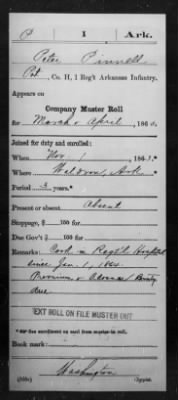 P 1 Ark.
Peter Pinnell
Pvt., Co. H, 1 Reg't Arkansas Infantry.
Appears on
Company Master Roll
for March & April, 186
Joined for duty and enrolled:
When Nov. 1, 186
Where Waldron, Ark.
Period 3 years.*
Present or absent, Absent
Stoppage, $ 100 for
Due Gov't $ 100 for
Remarks: in Reg'tl Hospital
since Jan. 1, 1864.
Premium & Advance Bounty
due
TEXT ROLL ON FILE MUSTER OUT
Book mark:
Washington
Copyist.